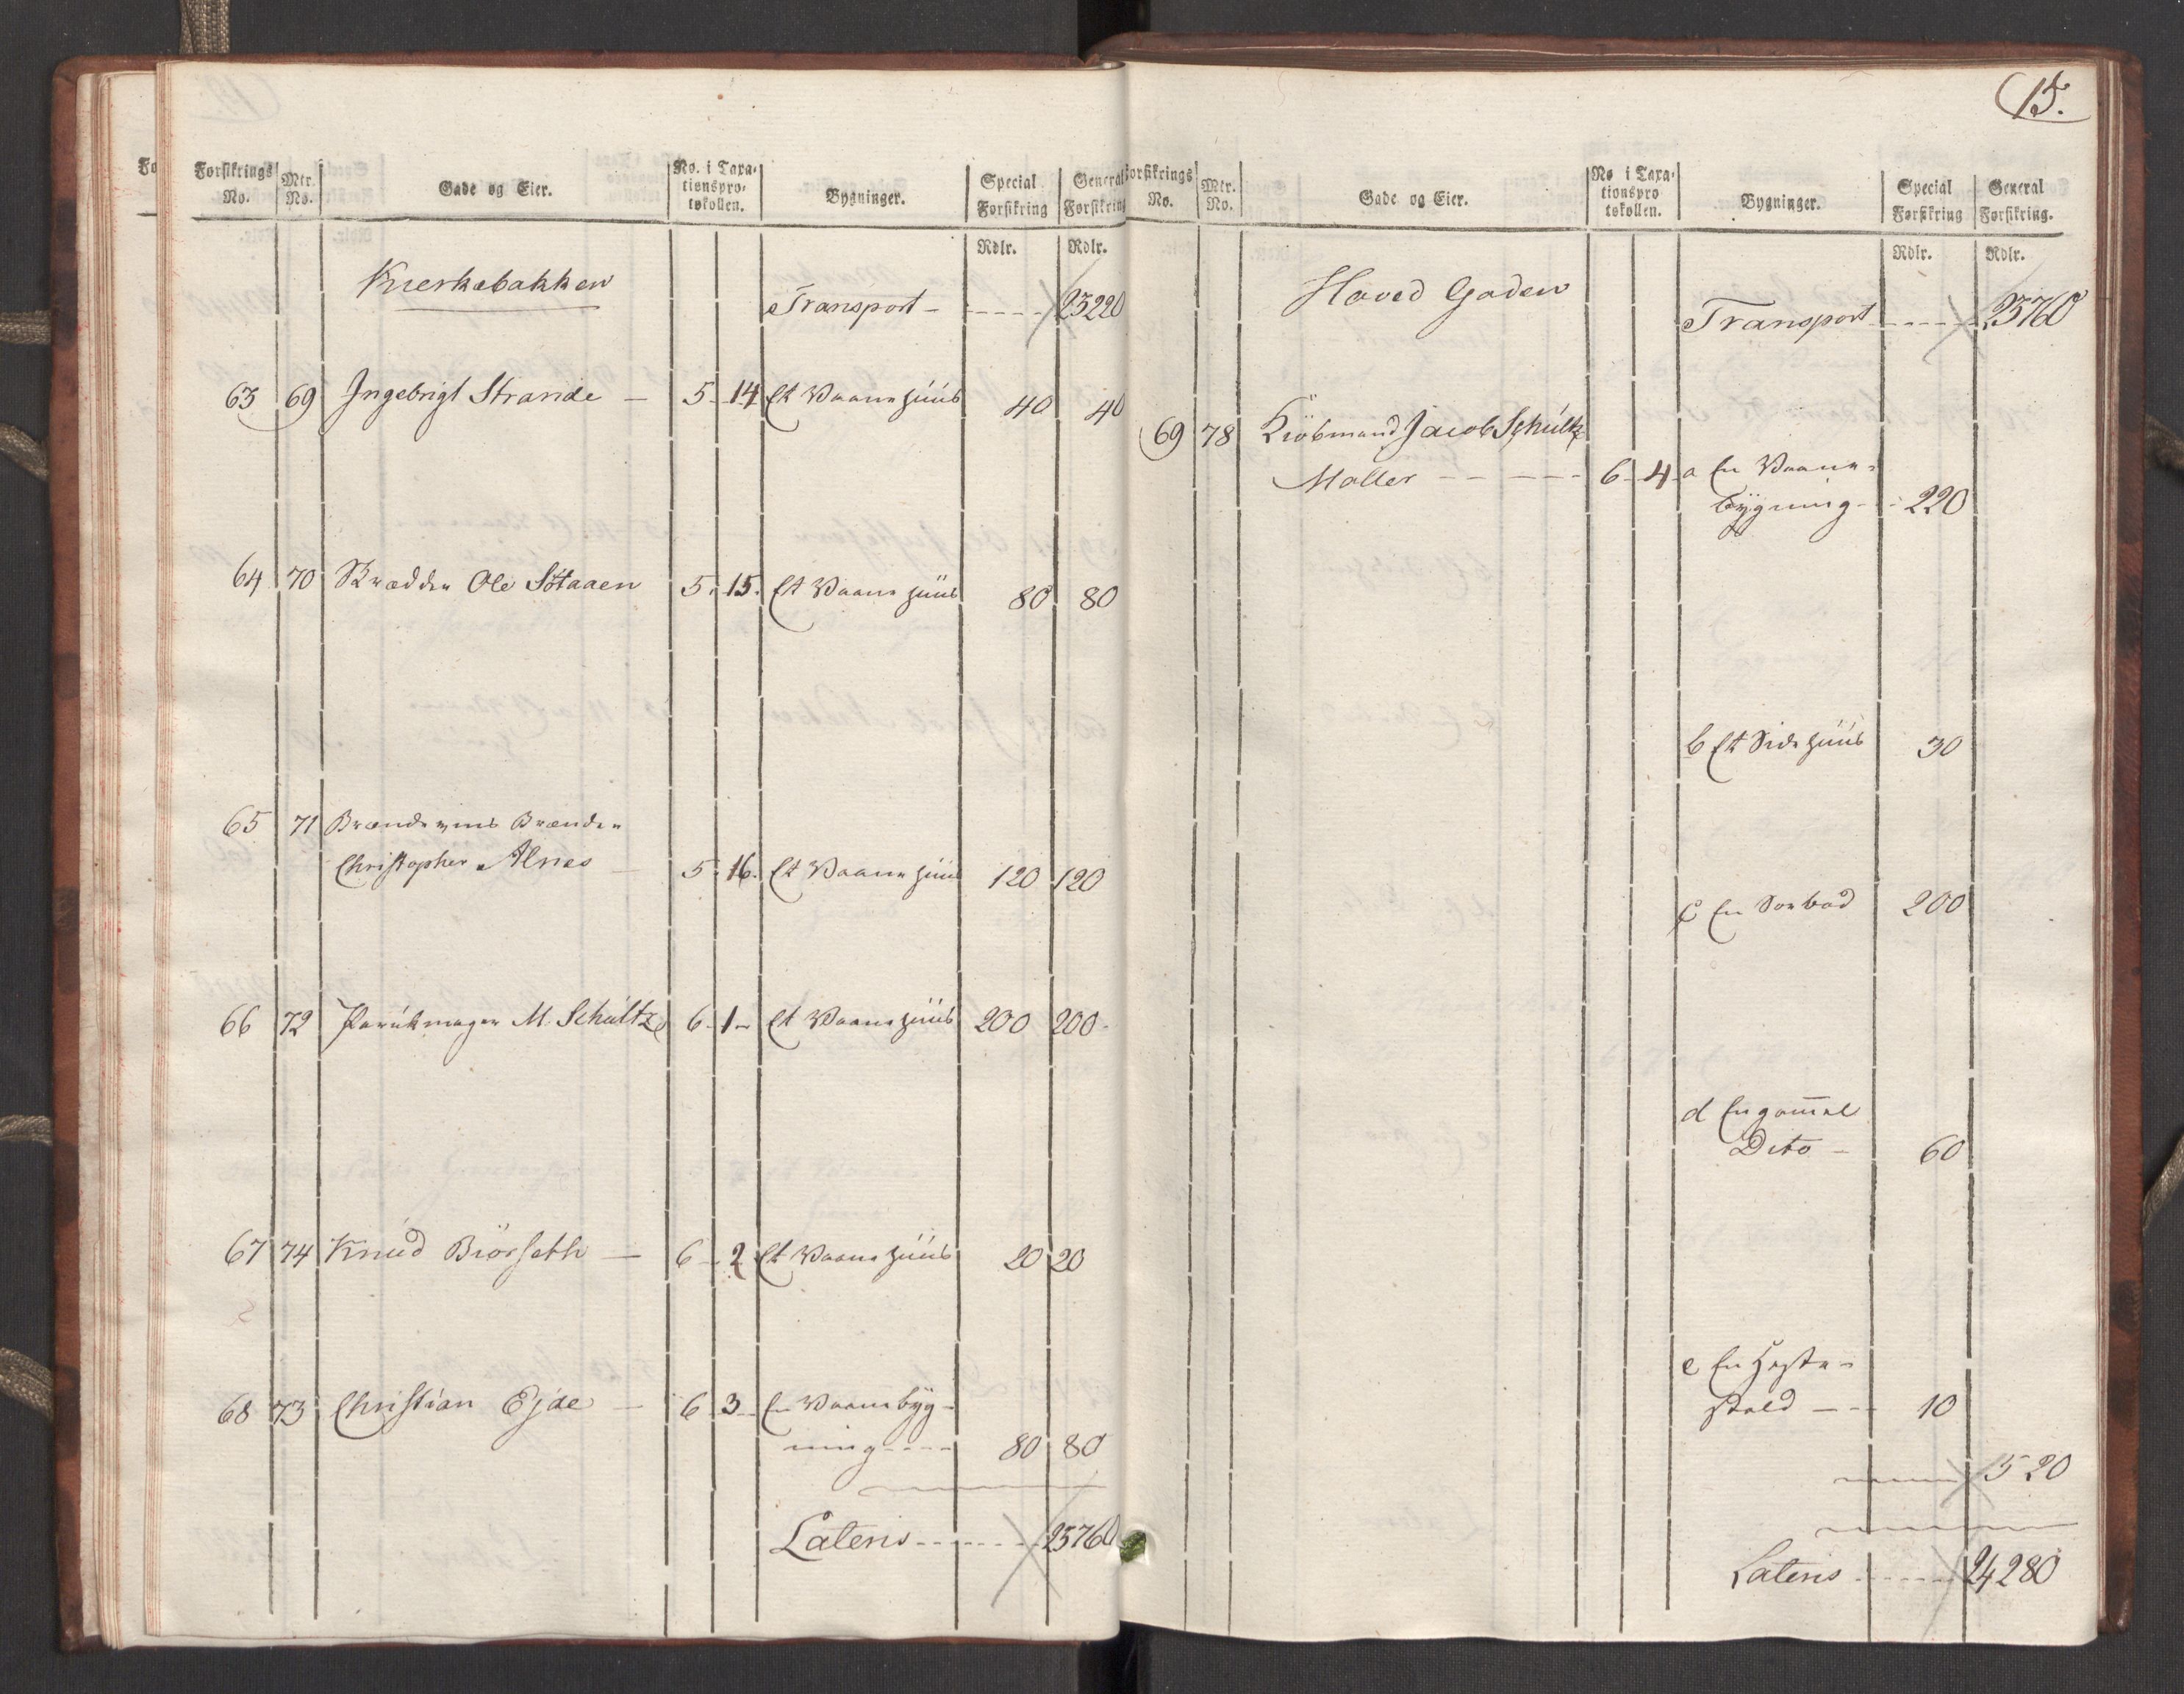 Forsikrings No. | Mtr. No. | Gade og Eier. | No. i Taxationsprotokollen. | Bygninger. | Special Forsikring | General Forsikring
Rdlr. | Rdlr.
Kierkebakken
Transport - 23220
63 69 Ingebrigt Strande - 5 14 Et Vaanehuus 40 40
64 70 Skrædder Ole Sötaaen 5. 15. Et Vaanehuus 80 80
65 71 Brændeviins Brænder
Christopher Alnes - 5. 16. Et Vaanehuus 120 120
66 72 Parükmager M. Schültz 6 1 Et Vaanehuus 200 200
67 74 Knüd Biörseth - 6 2 Et Vaanehuus 20 20
68 73 Christian Ejde - 6 3 En Vaanebyg-
ning 80 80
Lateris 23760
15.
Forsikrings No. | Mtr. No. | Gade og Eier. | No i Taxationsprotokollen. | Bygninger. | Special Forsikring | General Forsikring.
Rdlr. | Rdlr.
Hoved Gaden
Transport 23760
69 78 Kiöbmand Jacob Schültz
Møller 6 4 a En Vaane-
bygning 220
b Et Sidehuus 30
c En Søebod 200
d En gam̅el
Dito - 60
e En Heste-
stald 10
520
Lateris 24280